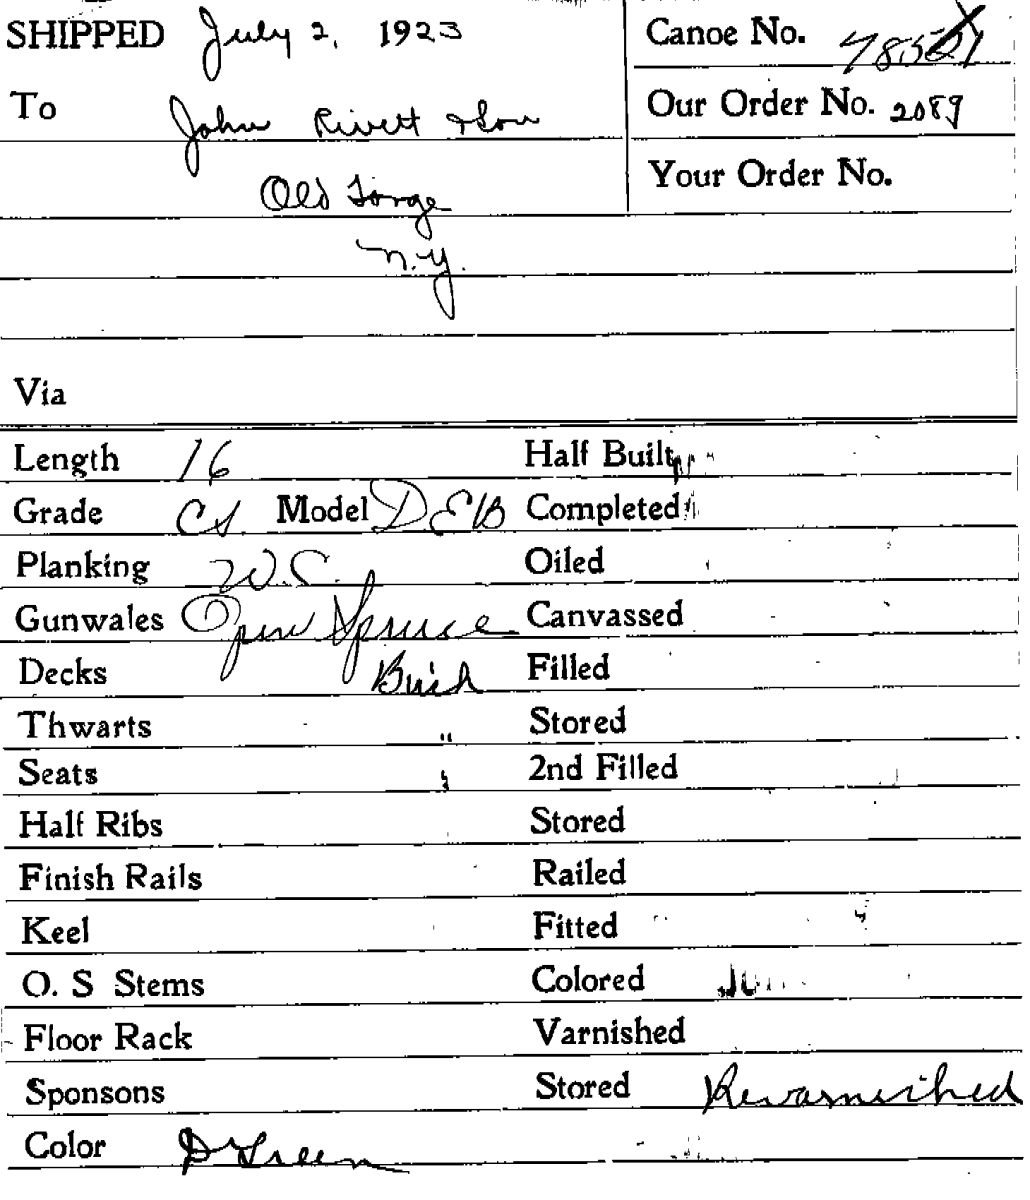 SHIPPED July 2, 1923
Canoe No.
To John Rivett & Son
Our Order No. 2089
Old Forge
Your Order No.
N.Y.
Via
Length 16 Half Built
Grade CS Model DEB Completed
Planking W.C. Oiled
Gunwales Open Spruce Canvassed
Decks Birch Filled
Thwarts " Stored
Seats " 2nd Filled
Half Ribs Stored
Finish Rails Railed
Keel Fitted
O. S Stems Colored
Floor Rack Varnished
Sponsons Stored Revarnished
Color D Green